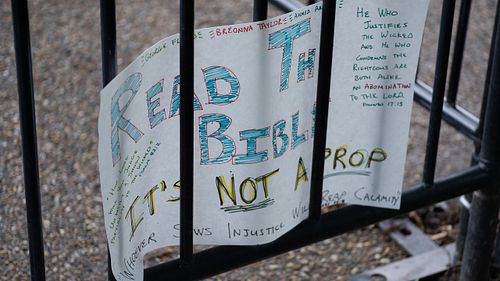 George Floyd
Breonna Taylor
Ahm
Read Th
Bible
It's Not a Prop
Whoever Sows Injustice Wil Reap Calamity
He Who
Justifies
the Wicked
and He who
Condemns the
Righteous are
both alike
an Abomination
to the Lord
Proverbs 17:15